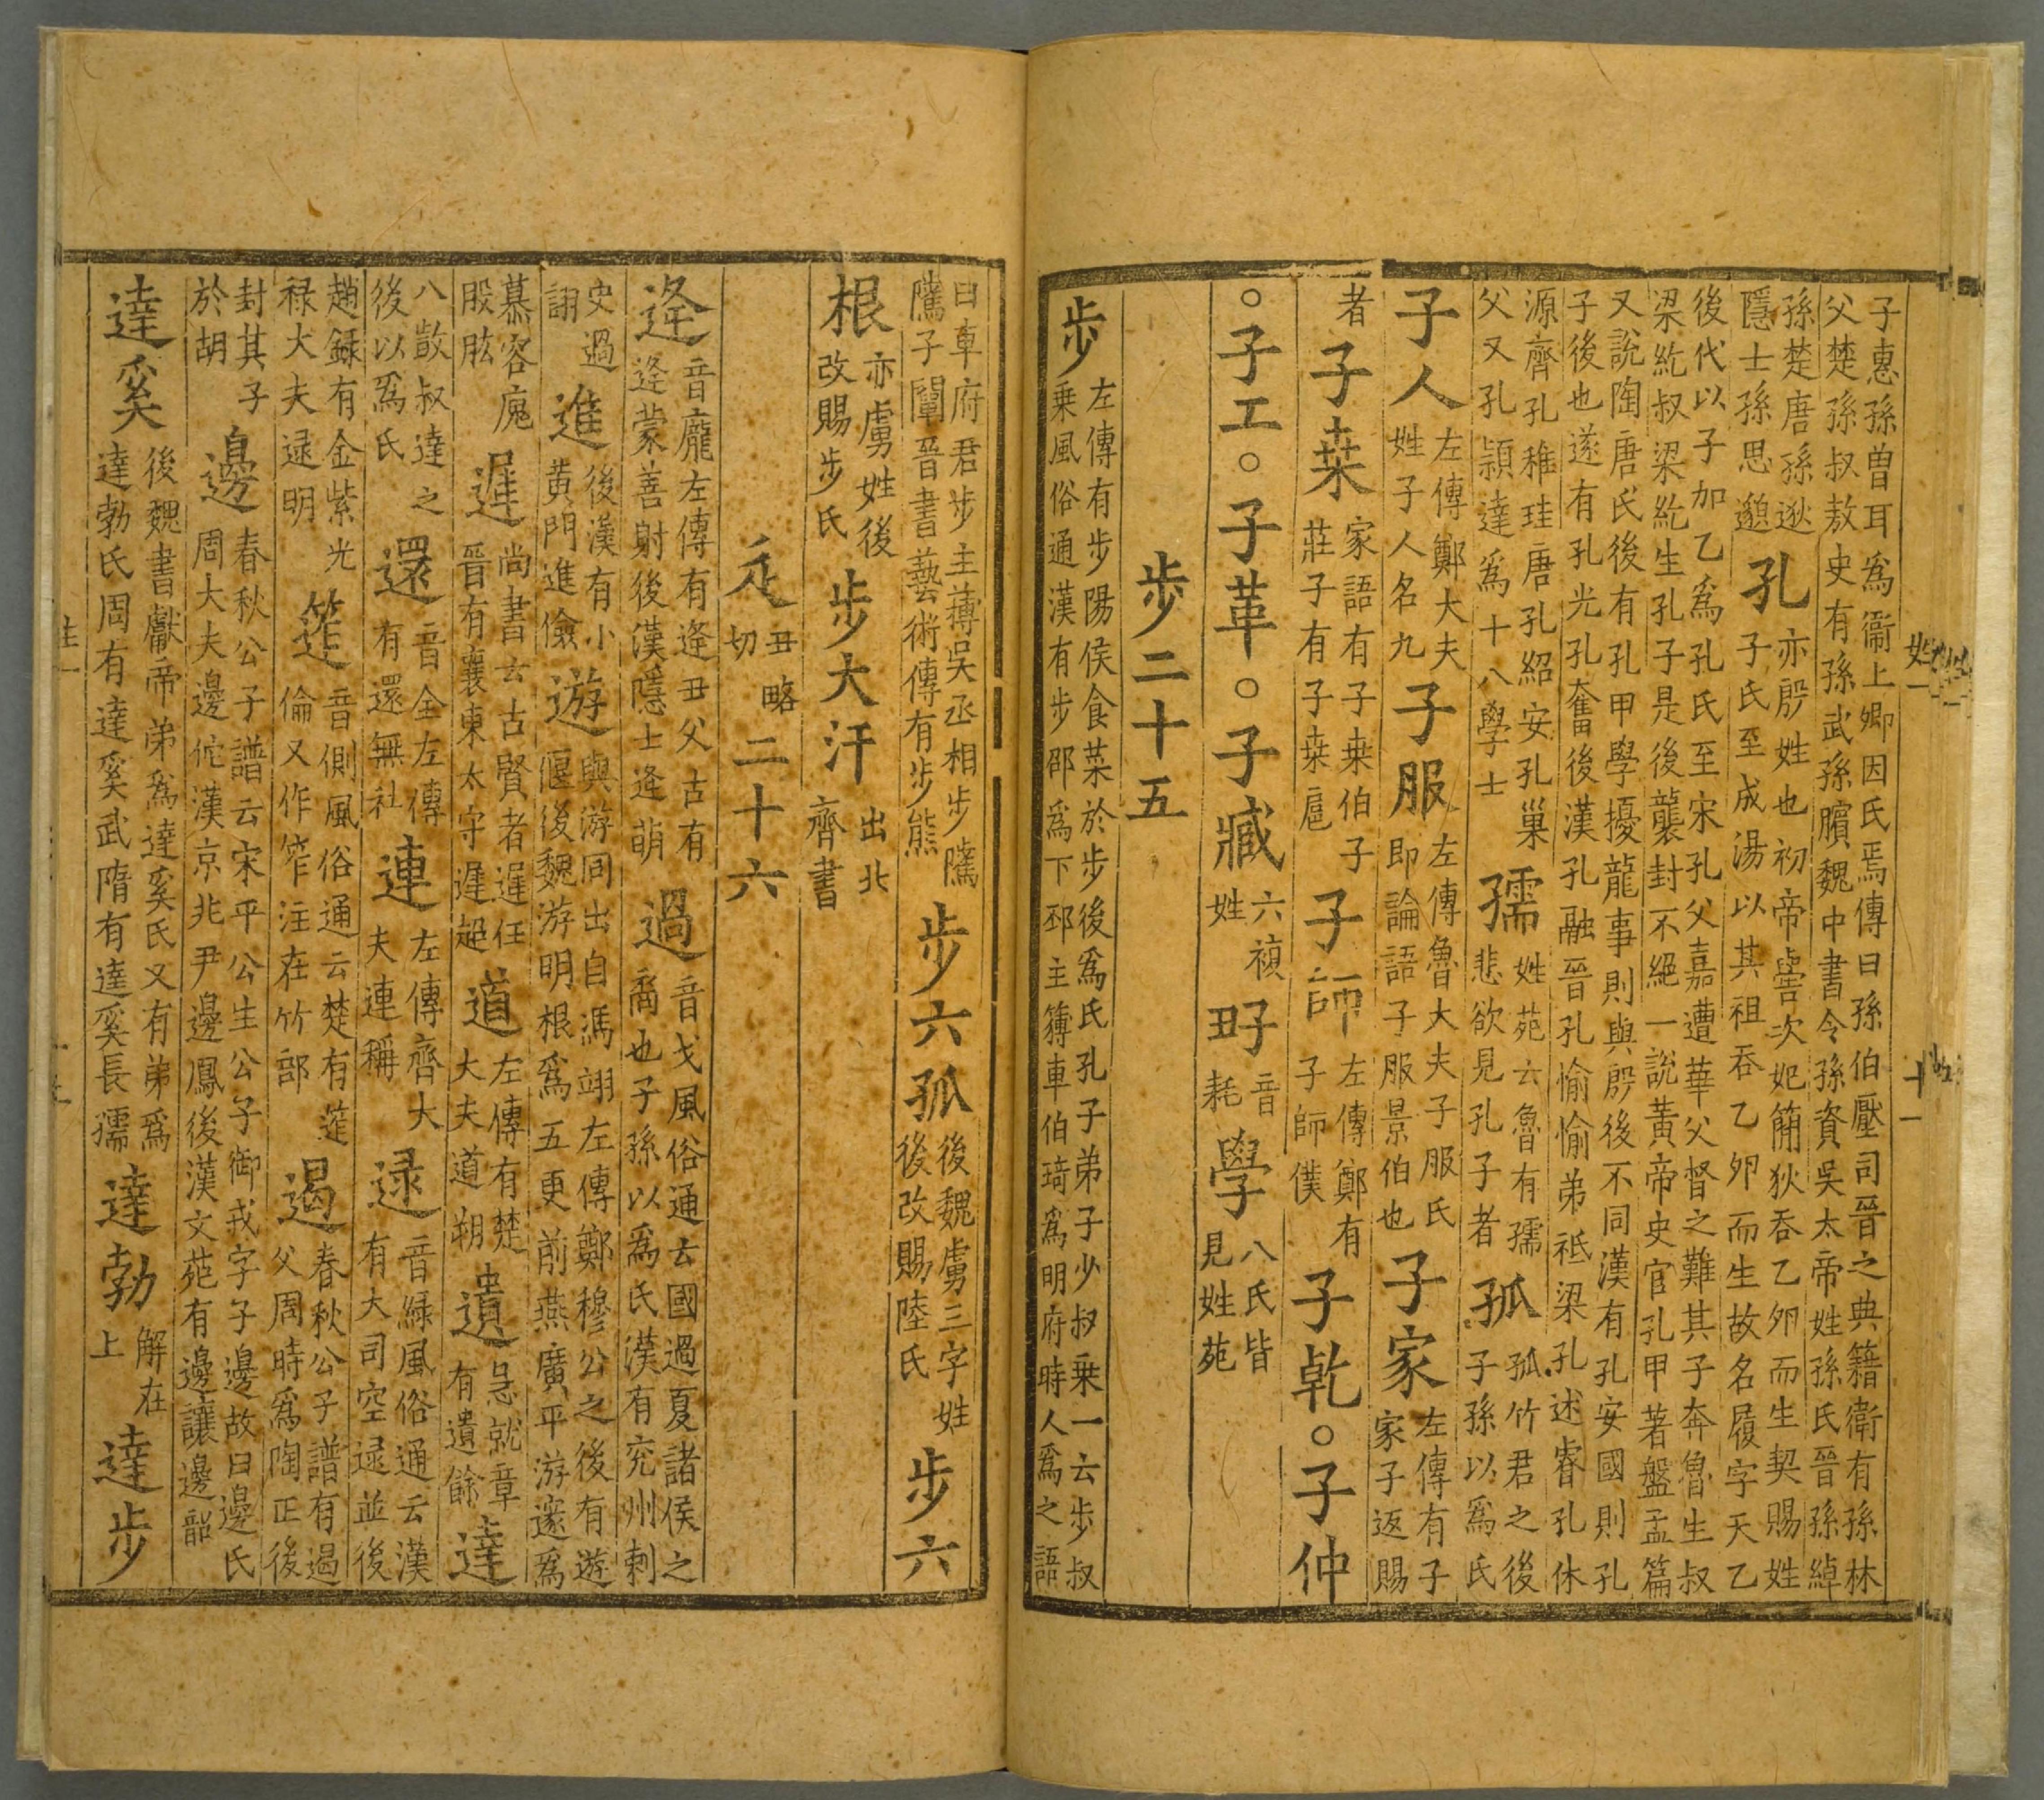 子惠孫曽耳爲衞上卿因氏焉傳曰孫伯壓司晉之典籍衛有孫林
父楚孫叔敖史有孫武孫臏魏中書令孫資吳太帝姓孫氏晉孫綽
孫楚唐孫逖
隱士孫思邈
孔
亦殷姓也初帝嚳次妃簡狄吞乙夘而生契賜姓
子氏至成湯以其祖吞乙夘而生故名履字天乙
後代以子加乙爲孔氏至宋孔父嘉遭華父督之難其子奔魯生叔
梁紇叔梁紇生孔子是後襲封不絕一說黃帝史官孔甲著盤盂篇
又說陶唐氏後有孔甲學擾龍事則與殷後不同漢有孔安國則孔
子後也遂有孔光孔奮後漢孔融晉孔愉愉弟祗梁孔述睿孔休
源齊孔稚珪唐孔紹安孔巢
父又孔頴達爲十八學士
孺
姓苑云魯有孺
悲欲見孔子者
孤
孤竹君之後
子孫以爲氏
子人
左傳鄭大夫
姓子人名九
子服
左傳魯大夫子服氏
即論語子服景伯也
子家
左傳有子
家子返賜
者
子桒
家語有子桒伯子
莊子有子桒扈
子師
左傳鄭有
子師僕
子乾○子仲
○子工○子革○子臧
六
姓

音
耗
學
八氏皆
見姓苑
步二十五
步
左傳有步陽侯食菜於步後爲氏孔子弟子少叔乗一云步叔
乗風俗通漢有步邵爲下邳主簿車伯琦爲明府時人爲之語
曰車府君步主薄吳丞相步騭
騭子闡晉書藝術傳有步熊
步六孤
後魏虜三字姓
後改賜陸氏
步六
根
亦虜姓後
改賜步氏
步大汗
出北
齊書
辵
丑略
切
二十六
逄
音龐左傳有逄丑父古有
逄蒙善射後漢隱士逄萌
過
音戈風俗通云國過夏諸侯之
裔也子孫以爲氏漢有兖州刺
史過
詡
進
後漢有小
黃門進儉
遊
與游同出自馮翊左傳鄭穆公之後有遊
偃後魏游明根爲五更前燕廣平游邃爲
慕容廆
股肱
遲
尚書云古賢者遲任
晉有襄東太守遲超
道
左傳有楚
大夫道朔
遺
急就章
有遺餘
達
八敳叔達之
後以爲氏
還
音全左傳
有還無社
連
左傳齊大
夫連稱
逯
音緑風俗通云漢
有大司空逯並後
趙錄有金紫光
禄大夫逯明
䇥
音側風俗通云楚有䇥
倫又作笮注在竹部
遏
春秋公子譜有遏
父周時爲陶正後
封其子
於胡
邊
春秋公子譜云宋平公生公子御戎字子邊故曰邊氏
周大夫邊伯漢京兆尹邊鳳後漢文苑有邊讓邊韶
達奚
後魏書獻帝弟爲達奚氏又有弟爲
達勃氏周有達奚武隋有達奚長孺
達勃
解在
上
達步